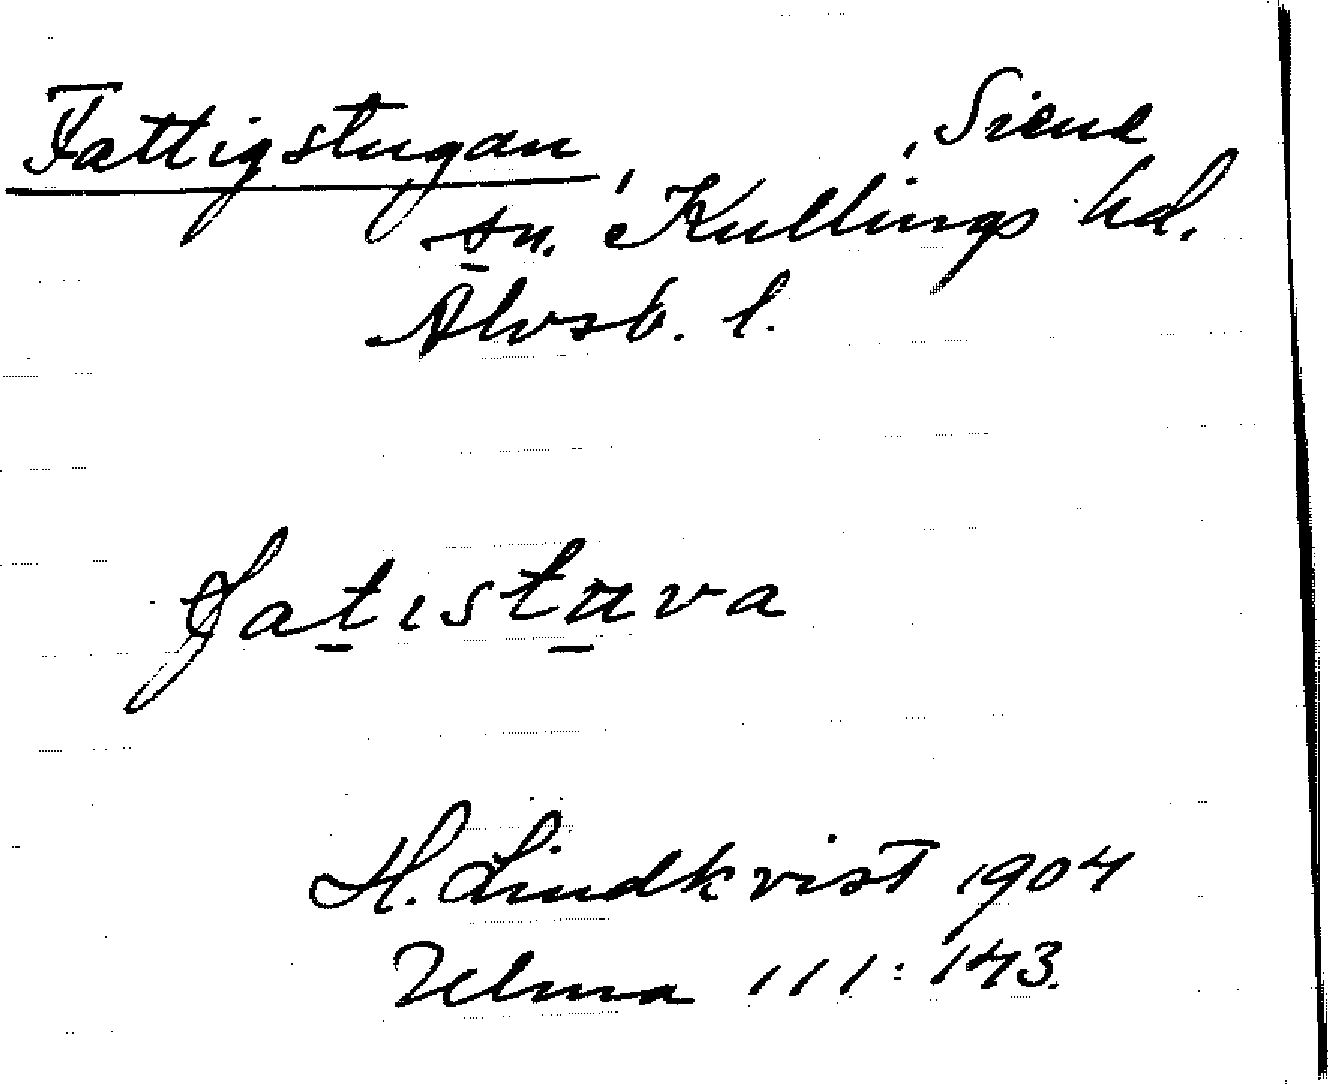 Fattigstugan, Siene
sn. Kullings hd.
Älvsb. l.
fatistuva
H. Lindkvist 1904
Ulma 111:143.